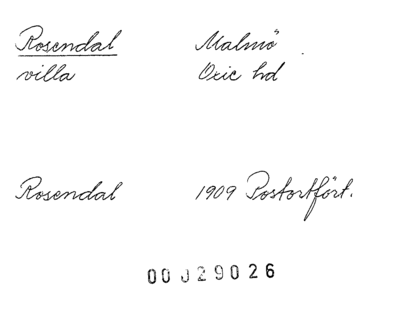 Rosendal Malmö
villa Oxie hd
Rosendal 1909 Postortfört.
00 J29026